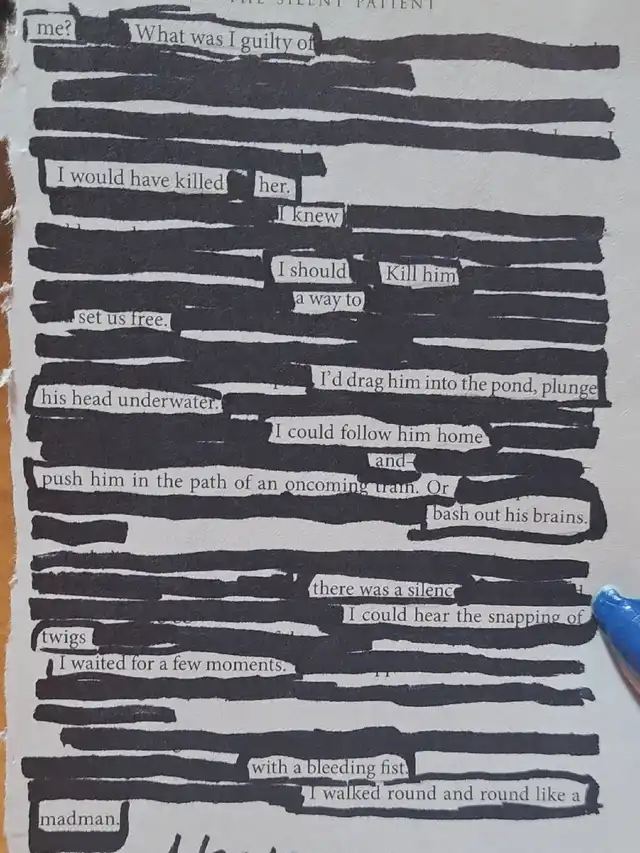 THE SILENT PATIENT
me? What was I guilty of
I would have killed her.
I knew
I should Kill him
a way to
set us free.
I'd drag him into the pond, plunge
his head underwater.
I could follow him home
and
push him in the path of an oncoming train. Or
bash out his brains.
there was a silenc
I could hear the snapping of
twigs
I waited for a few moments.
with a bleeding fist.
I walked round and round like a
madman.